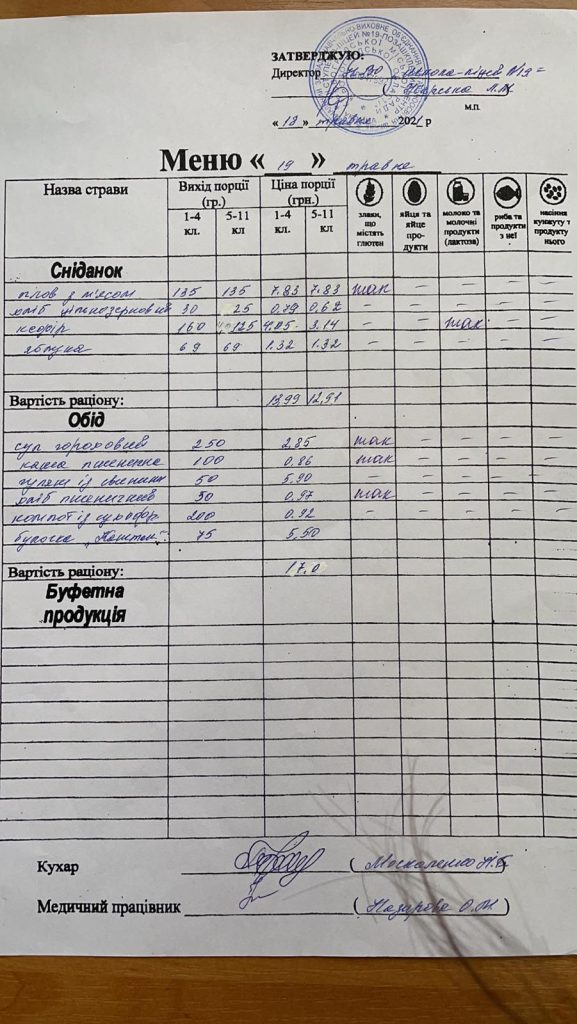 ЗАТВЕРДЖУЮ:
Директор НВО школа-ліцей №19
м.п.
« 18 » травня 2021 р
Меню « 19 » травня
Назва страви Вихід порції (гр.) Ціна порції (грн.) злаки, що містять глютен яйця та яйце продукти молоко та молочні продукти (лактоза) риба та продукти з неї насіння кунжуту т продукту нього
1-4 кл. 5-11 кл. 1-4 кл. 5-11 кл
Сніданок
плов з м'ясом 135 135 7.83 7.83 так – – – –
хліб цільнозерновий 30 25 0,79 0,62 – – – – –
кефір 160 125 4.05 3.14 – – так – –
яблука 69 69 1.32 1.32 – – – – –
Вартість раціону: 13,99 12,91
Обід
суп гороховий 250 2,85 так – – – –
каша пшенична 100 0,86 так – – – –
гуляш із свинини 50 5,90 – – – – –
хліб пшеничний 50 0,97 так – – – –
компот із сухофр 200 0.92 – – – – –
булочка „Каштан" 75 5,50
Вартість раціону: 17,0
Буфетна продукція
Кухар ( Москаленко Н.Б. )
Медичний працівник ( Назарова О.М. )